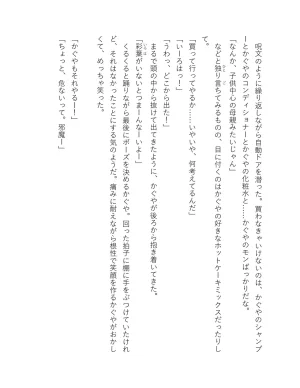 呪文のように繰り返しながら自動ドアを潜った。買わなきゃいけないのは、かぐやのシャンプ
ーとかぐやのコンディショナーとかぐやの化粧水と……かぐやのモンばっかりだな。
「なんか、子供中心の母親みたいじゃん」
などと独り言ちてみるものの、目に付くのはかぐやの好きなホットケーキミックスだったりし
て。
「買って行ってやるか……いやいや、何考えてるんだ」
「いーろはっ！」
「うわっ、どこから出た！」
まるで頭の中から抜けて出てきたように、かぐやが後ろから抱き着いてきた。
「彩葉がいないとつまんなーいよー」
くるくると踊りながら最後にポーズを決めるかぐや。回った拍子に棚に手をぶつけていたけれ
ど、それはなかったことにする気のようだ。痛みに耐えながら根性で笑顔を作るかぐやがおかし
くて、めっちゃ笑った。
「かぐやもそれやるー！」
「ちょっと、危ないって。邪魔ー」